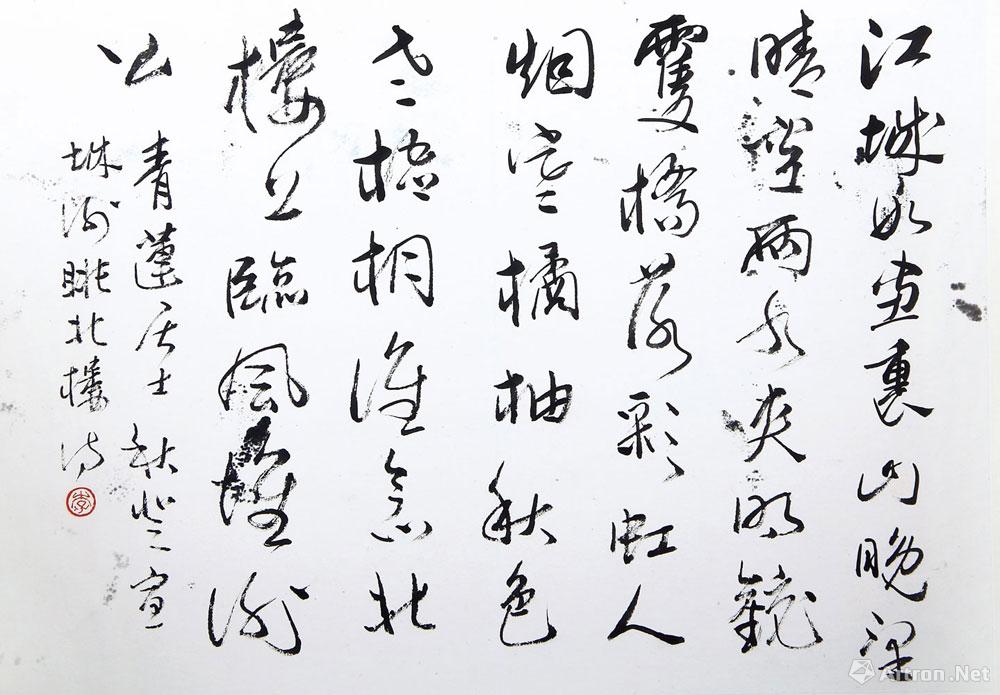 江城如畫裏山晚望
晴空兩水夾明鏡
雙橋落彩虹人
烟寒橘柚秋色
老梧桐誰念北
樓上臨風懷謝
公 青蓮居士 秋登宣
城謝朓北樓詩
李
Artron.Net